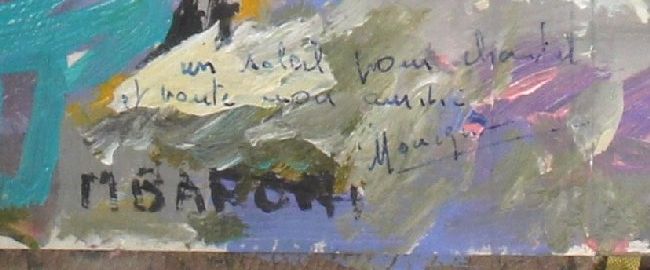 un soleil pour chantal
et toute mon amitié
Monique
M BARON